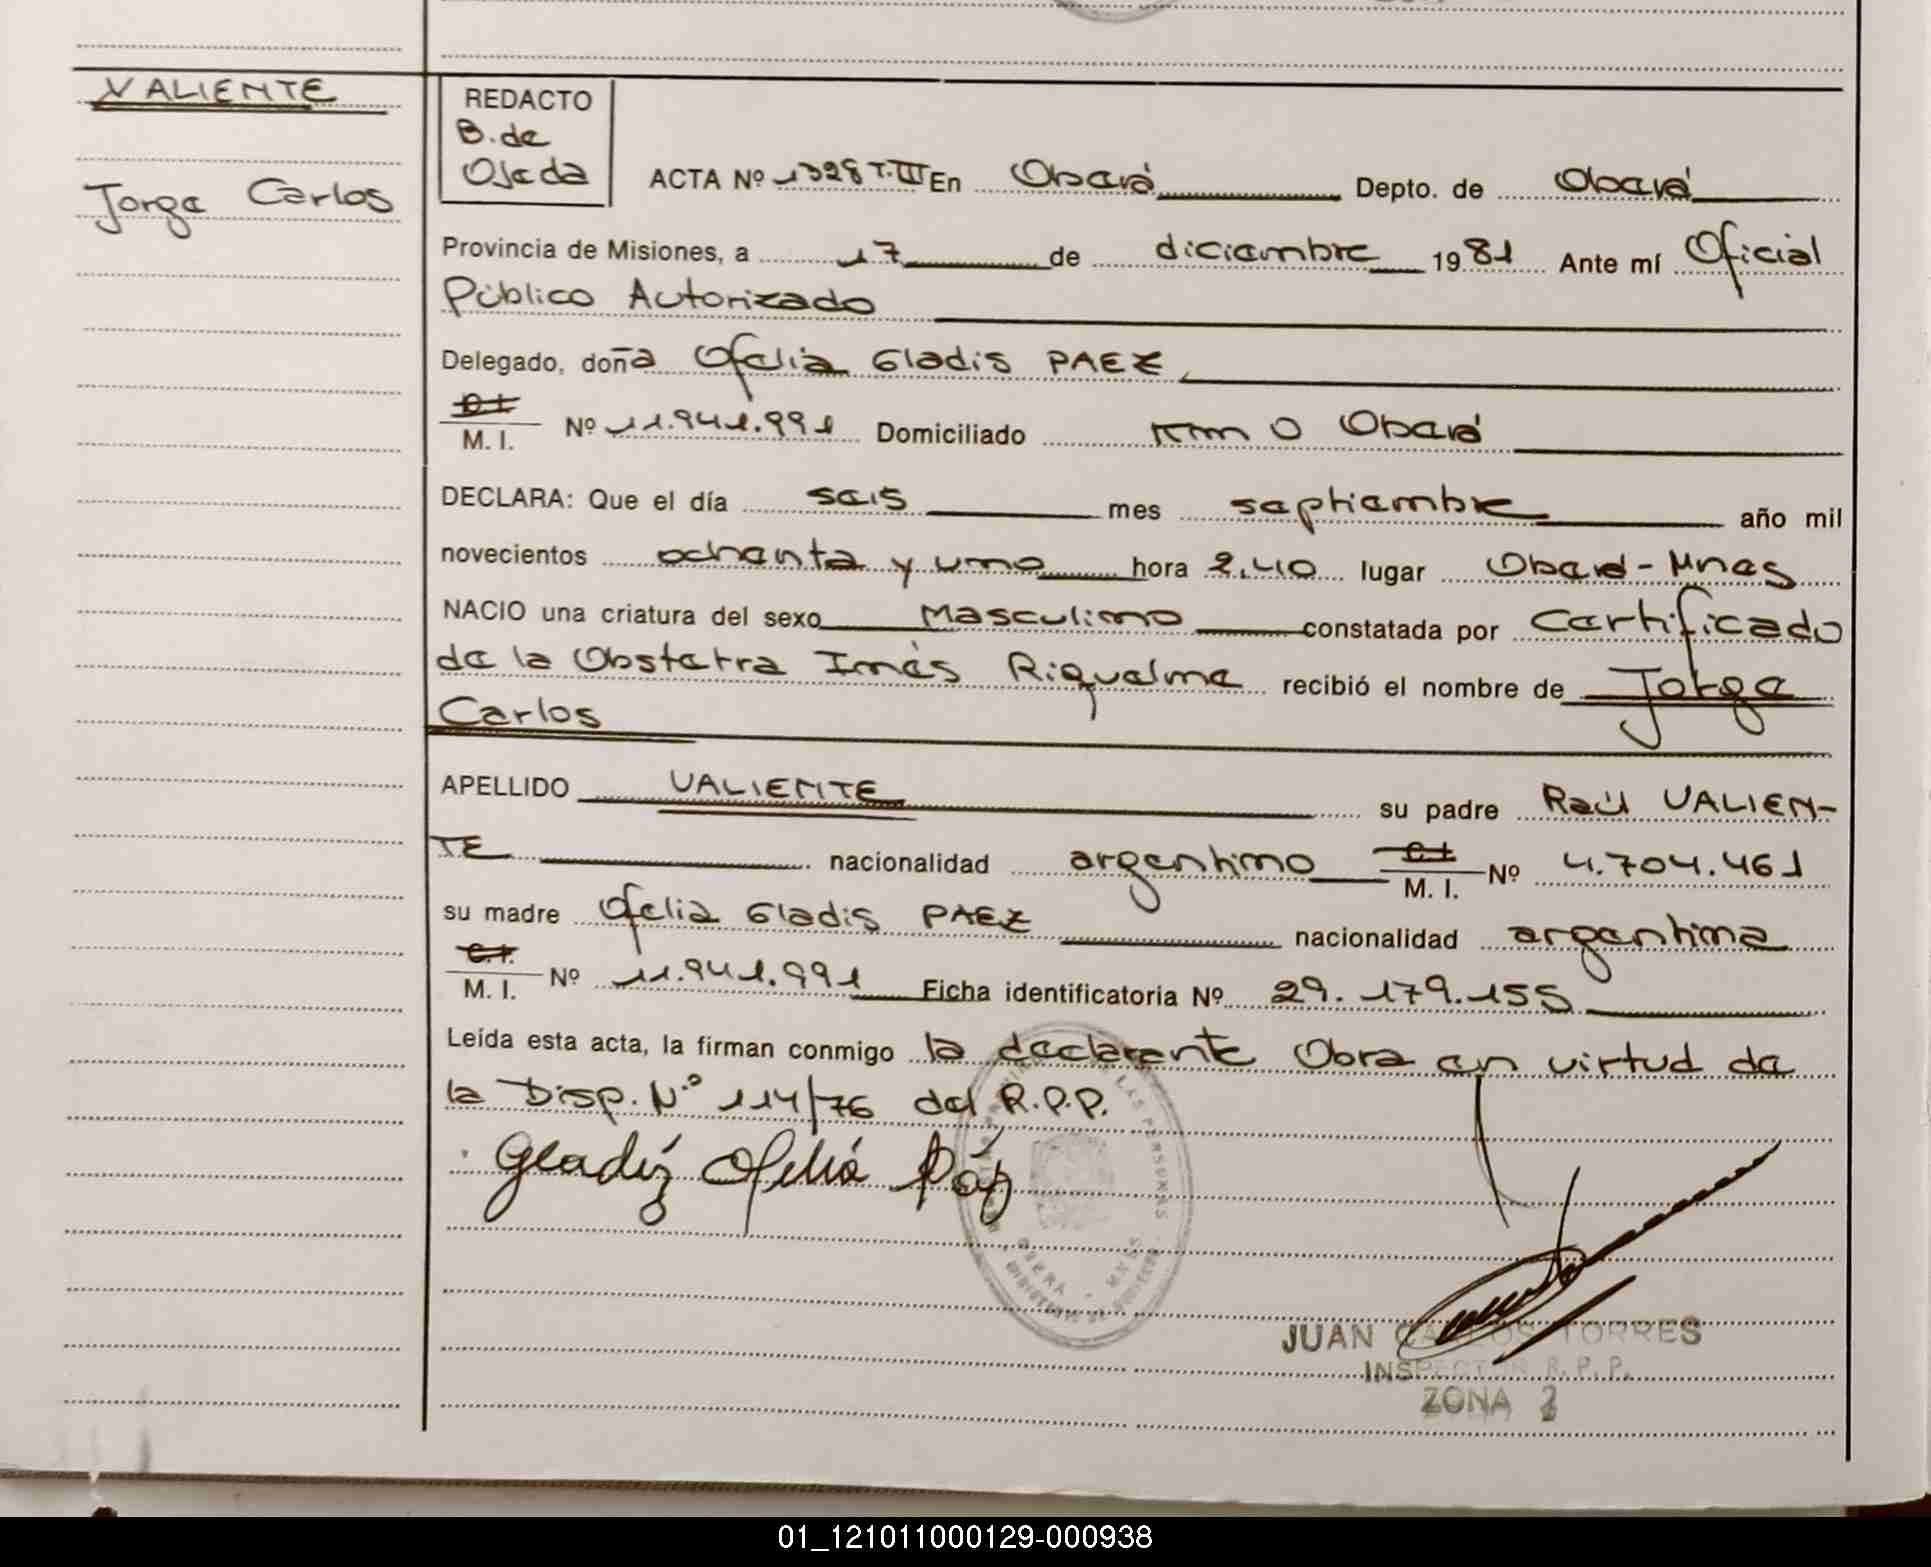 VALIENTE
Jorge Carlos
REDACTO
B. de
Ojeda
ACTA Nº 1328 T.III En Oberá Depto. de Oberá
Provincia de Misiones, a 17 de diciembre 1981 Ante mí Oficial
Público Autorizado
Delegado, doña Ofelia Gladis PAEZ
M. I. Nº 11.941.991 Domiciliado Km 0 Oberá
DECLARA: Que el día seis mes septiembre año mil
novecientos ochenta y uno hora 2,40 lugar Oberá-Mnes
NACIO una criatura del sexo Masculino constatada por Certificado
de la Obstetra Inés Riquelme recibió el nombre de Jorge
Carlos
APELLIDO VALIENTE su padre Raúl VALIEN-
TE nacionalidad argentino C.I. M. I. Nº 4.704.461
su madre Ofelia Gladis PAEZ nacionalidad argentina
C.I. M. I. Nº 11.941.991 Ficha identificatoria Nº 29.179.155
Leída esta acta, la firman conmigo la declarante Obra en virtud de
la Disp. N.º 114/76 del R.P.P.
Gladiz Ofelia Páz
LAS PERSONAS
OBERA - MNES
JUAN CARLOS TORRES
INSPECTOR R.P.P.
ZONA 2
01_121011000129-000938